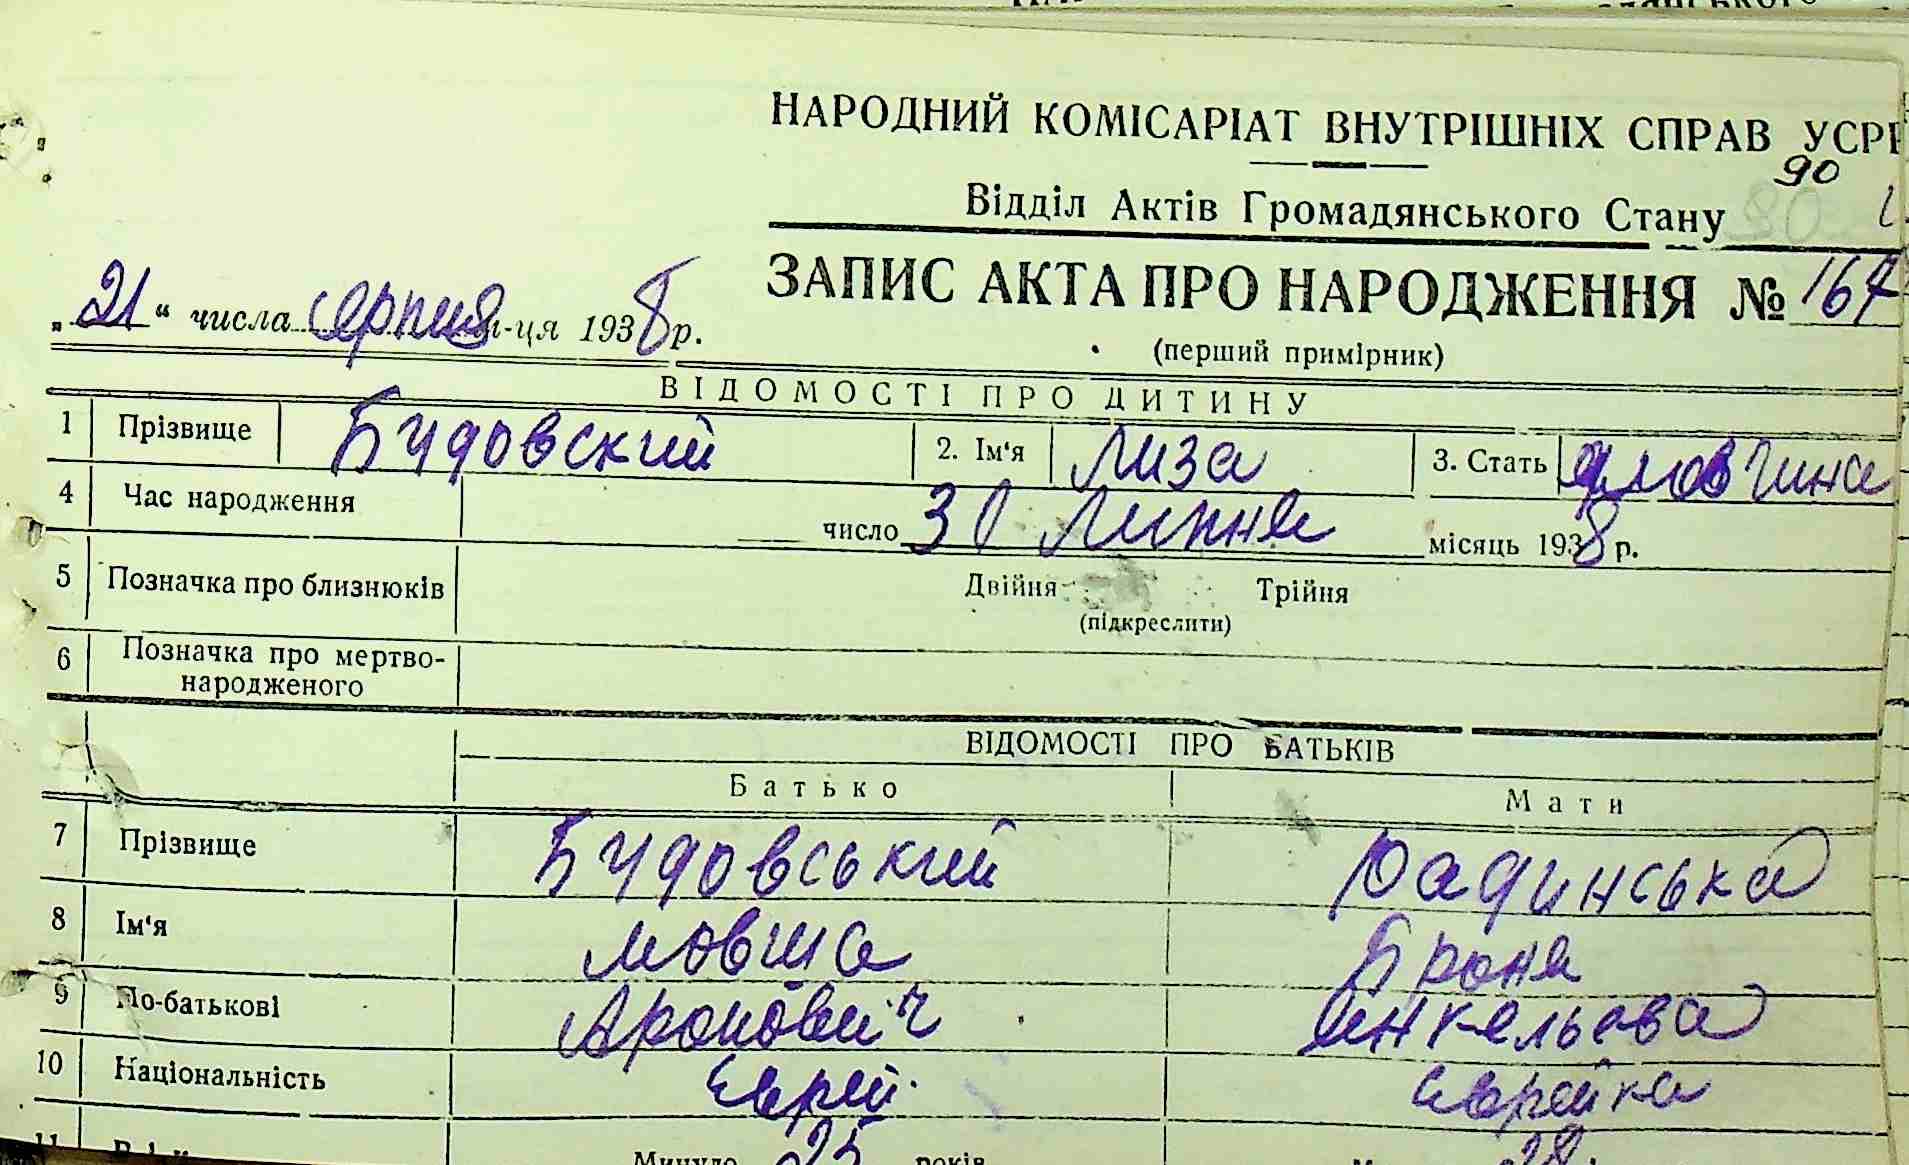 НАРОДНИЙ КОМІСАРІАТ ВНУТРІШНІХ СПРАВ УСРР
90
Відділ Актів Громадянського Стану 80
ЗАПИС АКТА ПРО НАРОДЖЕННЯ № 167
„21“ числа серпня м-ця 1938 р.
(перший примірник)
ВІДОМОСТІ ПРО ДИТИНУ
1 Прізвище Будовский 2. Ім'я Лиза 3. Стать
4 Час народження число 30 Липня місяць 1938 р.
5 Позначка про близнюків Двійня Трійня
(підкреслити)
6 Позначка про мертво-
народженого
ВІДОМОСТІ ПРО БАТЬКІВ
Батько Мати
7 Прізвище Будовський Радинська
8 Ім'я Мовша Броня
9 По-батькові Аронович Інкельева
10 Національність Єврей Єврейка
11 Минуло 25 років 28